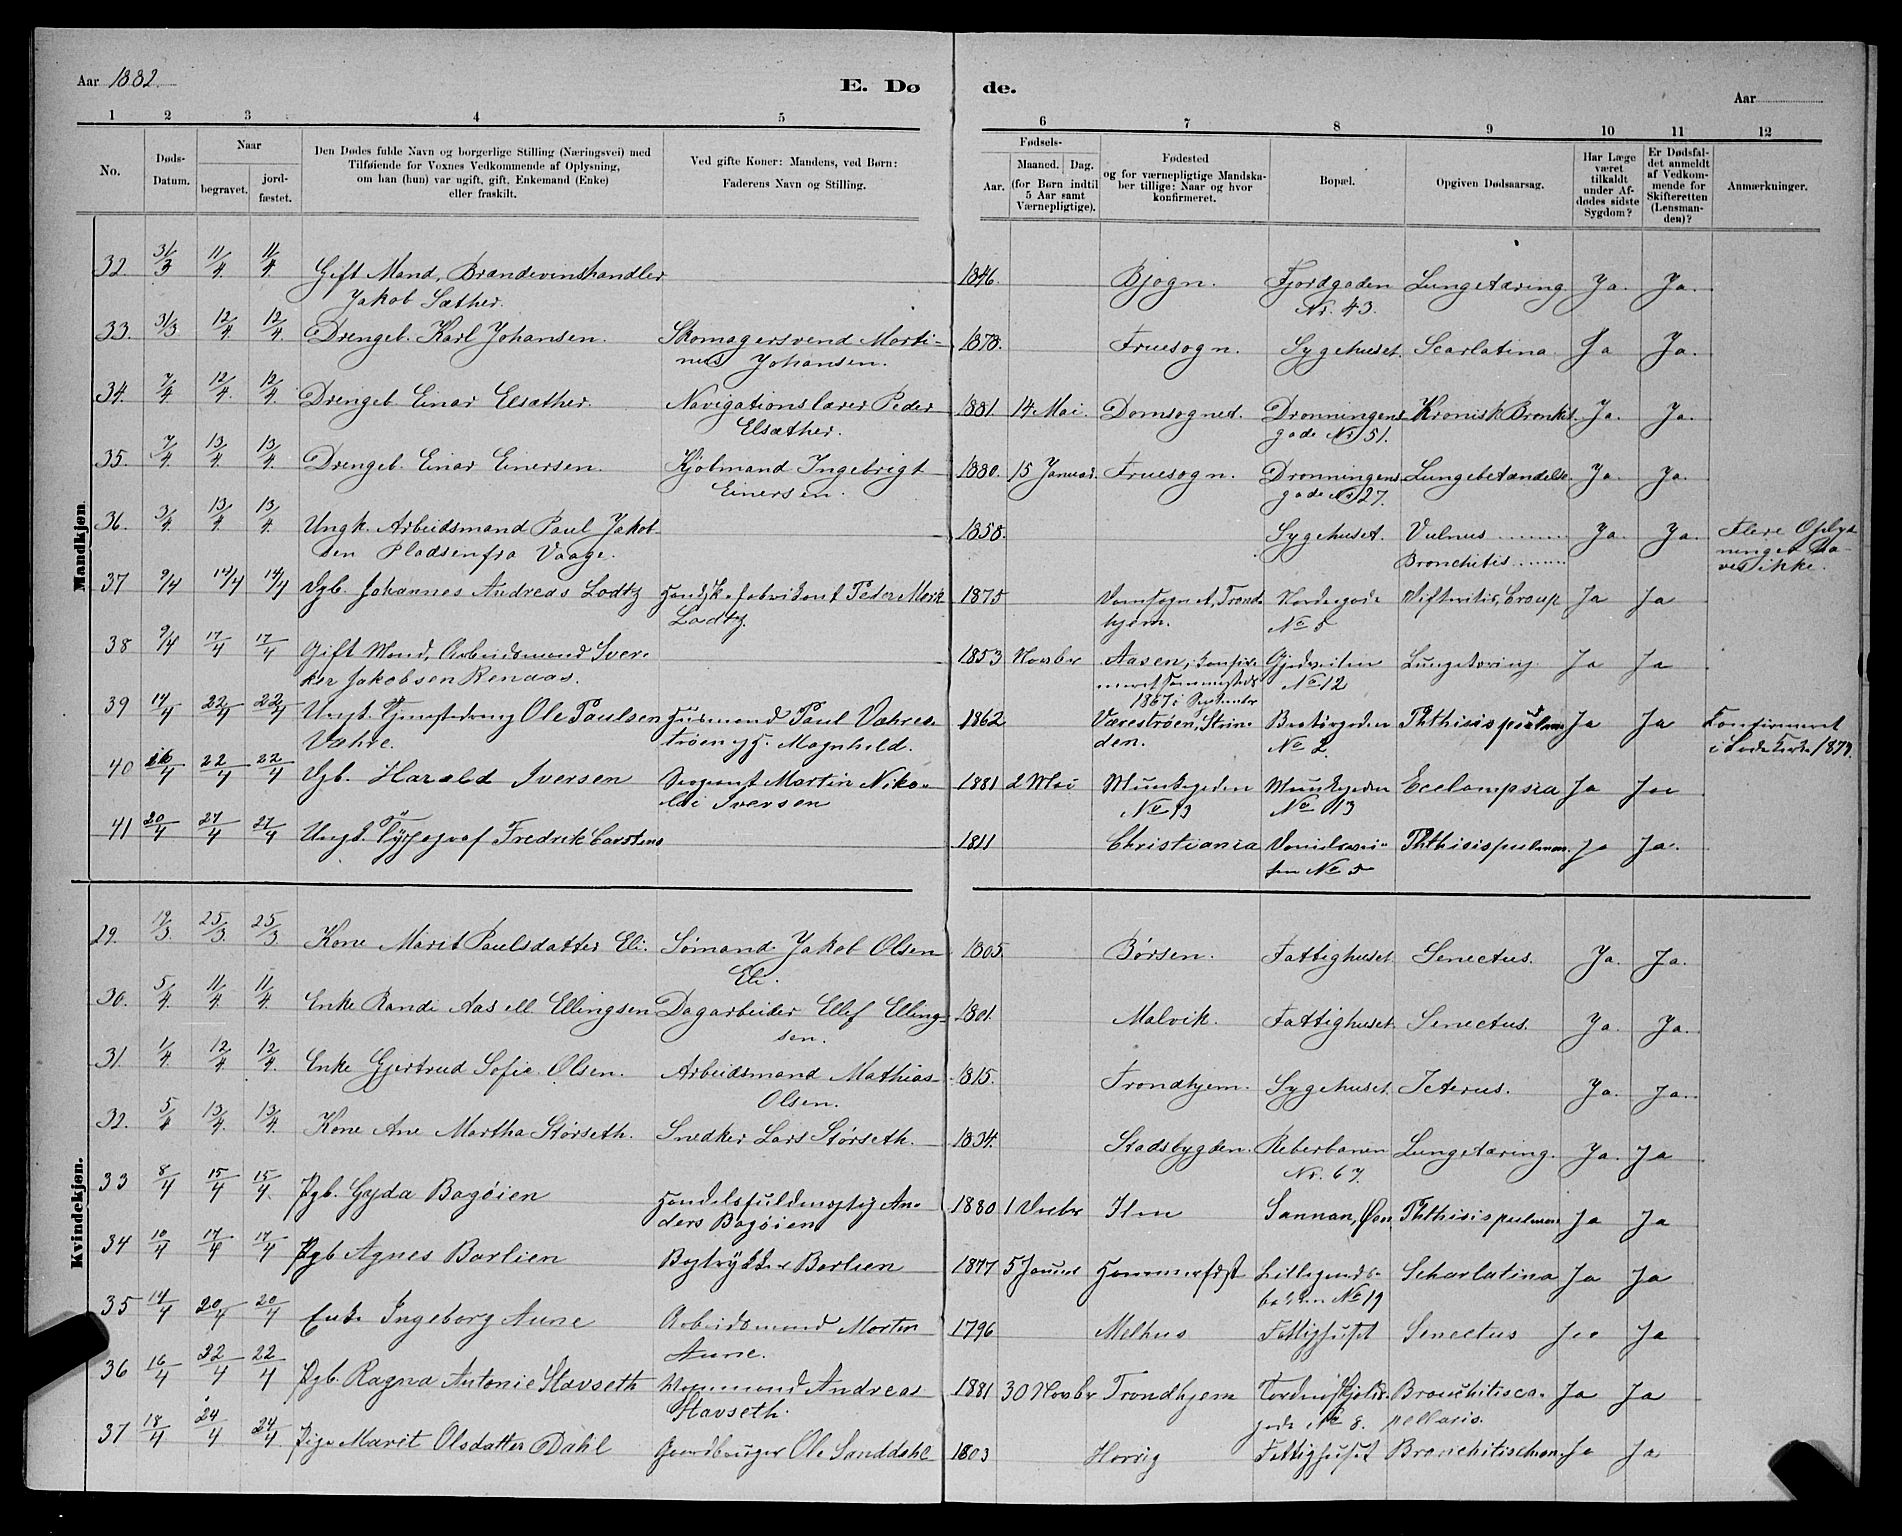 Aar 1882
E. Døde.
Aar
1 2 3 4 5 6 7 8 9 10 11 12
No.
Døds-Datum.
Naar
begravet.
jordfæstet.
Den Dødes fulde Navn og borgerlige Stilling (Næringsvei) med
Tilføiende for Voxnes Vedkommende af Oplysning,
om han (hun) var ugift, gift, Enkemand (Enke)
eller fraskilt.
Ved gifte Koner: Mandens, ved Børn:
Faderens Navn og Stilling.
Fødsels-
Aar.
Maaned. Dag.
(for Børn indtil
5 Aar samt
Værnepligtige).
Fødested
og for værnepligtige Mandska-
ber tillige: Naar og hvor
konfirmeret.
Bopæl.
Opgiven Dødsaarsag.
Har Læge
været
tilkaldt
under Af-
dødes sidste
Sygdom?
Er Dødsfal-
det anmeldt
af Vedkom-
mende for
Skifteretten
(Lensman-
den)?
Anmærkninger.
Mandkjøn.
32. 31/3 11/4 11/4 Gift Mand, Brændevinshandler 1846. Bjogn. Fjordgaden Lungetæring Ja. Ja.
Jakob Sæther. Nr. 43.
33. 31/3 12/4 12/4 Drengeb. Karl Johansen. Skomagersvend Marti- 1878. Fruesogn. Sygehuset. Scarlatina. Ja Ja.
nus Johansen.
34. 7/4 12/4 12/4 Drengeb. Einar Elsæther. Navigationslærer Peder 1881. 14 Mai. Domsognet. Dronningens Kronisk Bronkit. Ja. Ja.
Elsæther. gade No 51.
35. 7/4 13/4 13/4 Drengeb. Einar Einersen. Kjøbmand Ingebrigt 1880. 15 Januar. Fruesogn. Dronningens Lungebetændelse. Ja. Ja.
Einersen. gade No 27.
36. 3/4 13/4 13/4 Ungk. Arbeidsmand Paul Jakob- 1858. Sygehuset. Vulnus Ja. Ja. Flere Oplys-
sen Pladsen fra Vaage. Bronchitis ninger ha-
ves ikke.
37 9/4 14/4 14/4 Dgb. Johannes Andreas Lodtz Handskefabrikant Peder Mørk 1875 Domsognet, Trond- Nordregade Difteritis, Croup Ja Ja
Lodtz. hjem. No 5
38 9/4 17/4 17/4 Gift Mand, Arbeidsmand Sver- 1853 Novbr Aasen, konfir- Gjedveiten Lungetæring. Ja Ja
ker Jakobsen Renaas. meret sammesteds No 12
1867 i September
39 14/4 22/4 22/4 Ungk. Tjenestedreng Ole Paulsen Husmand Paul Væhres- 1862 Værestrøen, Strin- Brattørgaden Phthisis pulmon Ja Ja Konfirmeret
Væhre. trøen og Magnhild. den. No 2 i Lade Kirke 1877.
40 16/4 22/4 22/4 Dgb. Harald Iversen Sergeant Martin Niko- 1881 2 Mai Munkegaden Munkegaden Eclampsia Ja Ja
lai Iversen No 13 No 13
41 20/4 27/4 27/4 Ungk. Fredrik Carstens 1811 Christiania Phthisis pulmon. Ja Ja.
No 5
Kvindekjøn.
29. 19/3 25/3 25/3 Kone Marit Paulsdatter Eli. Sømand Jakob Olsen 1805. Børsen. Fattighuset Senectus. Ja. Ja.
Eli.
30. 5/4 11/4 11/4 Enke Randi Aas ell Ellingsen Dagarbeider Ellef Elling- 1801. Malvik. Fattighuset. Senectus. Ja. Ja.
sen.
31. 1/4 12/4 12/4 Enke Gjertrud Sofie Olsen. Arbeidsmand Mathias 1815. Trondhjem. Sygehuset. Icterus. Ja. Ja.
Olsen.
32. 5/4 13/4 13/4 Kone Ane Martha Størseth. Snedker Lars Størseth. 1834. Stadsbygden. Reberbanen Lungetæring. Ja. Ja
Nr. 67.
33 8/4 15/4 15/4 Pgb. Gyda Bagøien Handelsfuldmægtig An- 1880 1 Ilen Sannan, Øen Phthisis pulmon Ja Ja
ders Bagøien
34 10/4 17/4 17/4 Pgb Agnes Barlien Bogtrykker Barlien 1877 5 Januar Hammerfest Lillegaards- Scharlatina Ja Ja
bakken No 19
35 14/4 20/4 20/4 Enke Ingeborg Aune Arbeidsmand Morten 1796 Melhus Fattighuset Senectus Ja Ja
Aune.
36 16/4 22/4 22/4 Pgb. Ragna Antonie Stavseth Vognmand Andreas 1881 30 Novbr Trondhjem Tordenskjolds- Bronchitis ca- Ja Ja
Stavseth. gade No 8. pellaris.
37 18/4 24/4 24/4 Pige Marit Olsdatter Dahl Gaardbruger Ole Sanddahl 1803 Horrig Fattighuset Bronchitis chron. Ja Ja